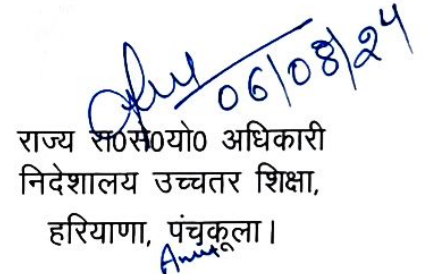 06/08/24
राज्य स0से0यो0 अधिकारी
निदेशालय उच्चतर शिक्षा,
हरियाणा, पंचकूला।